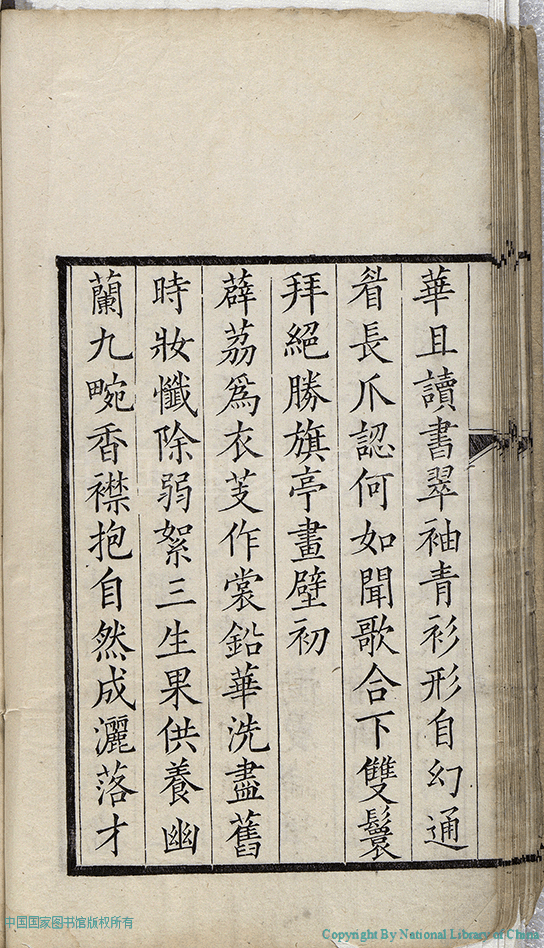 華且讀書翠袖青衫形自幻通
眉長爪認何如聞歌合下雙鬟
拜絕勝旗亭畫壁初
薜荔為衣芰作裳鉛華洗盡舊
時妝懺除弱絮三生果供養幽
蘭九畹香襟抱自然成灑落才
中国国家图书馆版权所有
Copyright By National Library of China